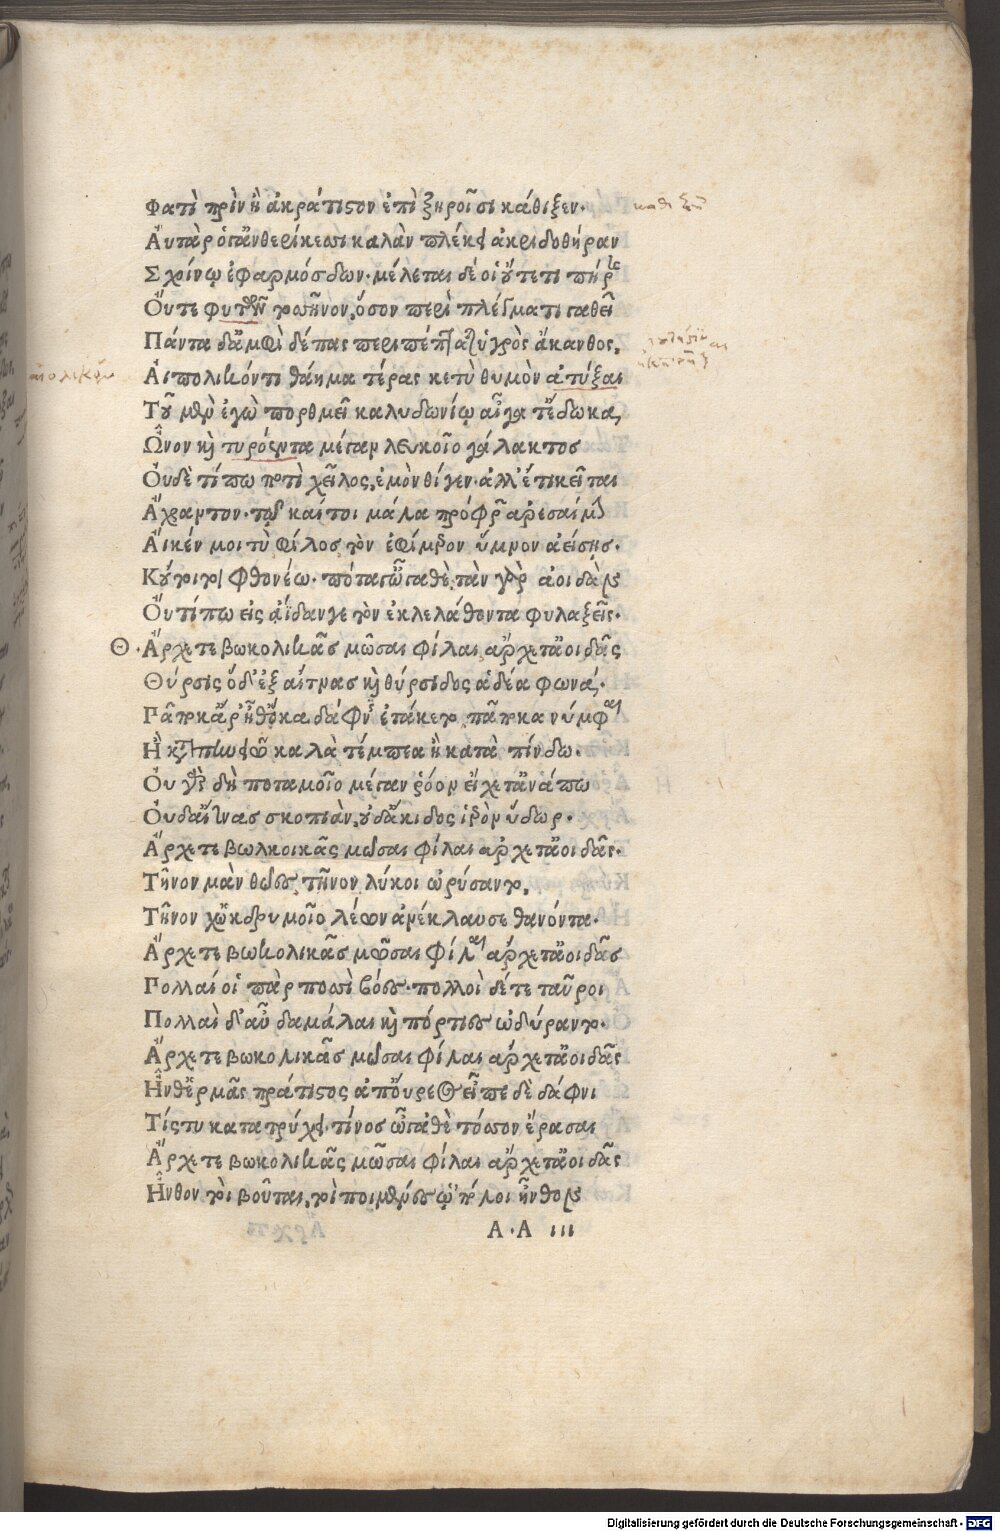 Φατὶ πρὶν ἢ ἀκράτιστον ἐπὶ ξηροῖσι κάθιξεν·
Αὐτὰρ ὅγ' ἀνθερίκεσσι καλὰν πλέκει ἀκριδοθήραν
Σχοίνῳ ἐφαρμόσδων· μέλεται δέ οἱ οὔτέ τι πήρας
Οὔτε φυτῶν τοσῆνον, ὅσον περὶ πλέγματι γαθεῖ
Πάντα δ' ἀμφὶ δέπας περιπέπταται ὑγρὸς ἄκανθος,
Αἰπολικόν τι θάημα τέρας κε τὺ θυμὸν ἀτύξαι
Τοῦ μὲν ἐγὼ πορθμεῖ καλυδωνίῳ αἶγά τ' ἔδωκα,
Ὦνον καὶ τυρόεντα μέγαν λευκοῖο γάλακτος
Οὐδέ τί πω ποτὶ χεῖλος ἐμὸν θίγεν· ἀλλ' ἔτι κεῖται
Ἄχραντον· τῷ καί τοι μάλα πρόφρων ἀρεσαίμην
Αἴκέν μοι τὺ φίλος τὸν ἐφίμερον ὕμνον ἀείσῃς·
Κού τοι τι φθονέω· πόταγ' ὦγαθέ, τὰν γὰρ ἀοιδὰν
Οὔτί πω εἰς ἀΐδαν γε τὸν ἐκλελάθοντα φυλαξεῖς·
Θ· Ἄρχετε βωκολικᾶς μῶσαι φίλαι ἄρχετ' ἀοιδᾶς
Θύρσις ὅδ' ἐξ αἴτνας καὶ θύρσιδος ἁδέα φωνά·
Πᾶ ποκ' ἄρ' ἦθ' ὅκα δάφνις ἐτάκετο, πᾶ ποκα νύμφαι
Ἢ κατὰ πηνειῶ καλὰ τέμπεα ἢ κατὰ πίνδω·
Οὐ γὰρ δὴ ποταμοῖο μέγαν ῥόον εἴχετ' ἀνάπω
Οὐδ' αἴτνας σκοπιὰν, οὐδ' ἄκιδος ἱερὸν ὕδωρ·
Ἄρχετε βωλκοικᾶς μῶσαι φίλαι ἄρχετ' ἀοιδᾶς·
Τῆνον μὰν θῶες, τῆνον λύκοι ὠρύσαντο,
Τῆνον χὠκ δρυμοῖο λέων ἀνέκλαυσε θανόντα·
Ἄρχετε βωκολικᾶς μῶσαι φίλαι ἄρχετ' ἀοιδᾶς
Πολλαί οἱ πὰρ ποσὶ βόες· πολλοὶ δέ τε ταῦροι
Πολλαὶ δ' αὖ δαμάλαι καὶ πόρτιες ὠδύραντο·
Ἄρχετε βωκολικᾶς μῶσαι φίλαι ἄρχετ' ἀοιδᾶς
Ἦνθ' ἑρμᾶς πράτιστος ἀπ' οὔρεος εἶπε δὲ δάφνι
Τίς τυ κατατρύχει· τίνος ὦγαθὲ τόσσον ἔρασαι
Ἄρχετε βωκολικᾶς μῶσαι φίλαι ἄρχετ' ἀοιδᾶς
Ἦνθον τοὶ βοῦται, τοὶ ποιμένες ᾡπόλοι ἦνθον
Α·Α iii
Digitalisierung gefördert durch die Deutsche Forschungsgemeinschaft - DFG